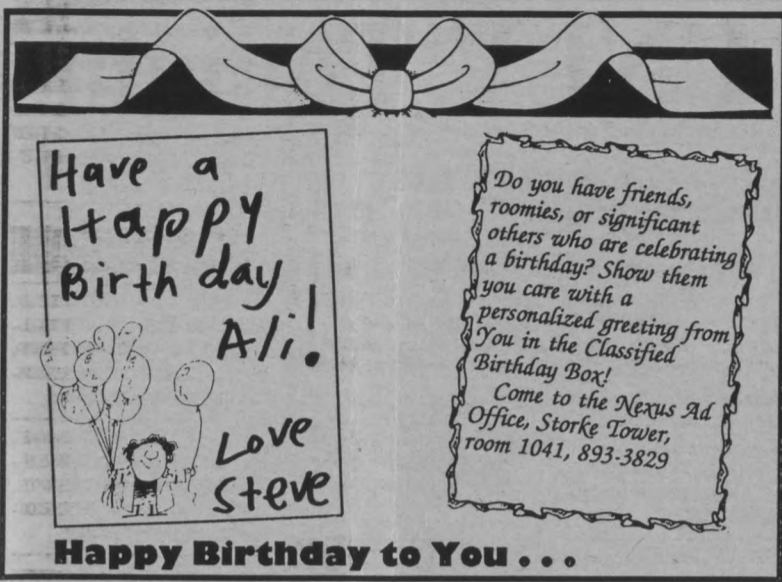 Have a
Happy
Birthday
Ali!
Love
Steve
Do you have friends,
roomies, or significant
others who are celebrating
a birthday? Show them
you care with a
personalized greeting from
You in the Classified
Birthday Box!
Come to the Nexus Ad
Office, Storke Tower,
room 1041, 893-3829
Happy Birthday to You . . .